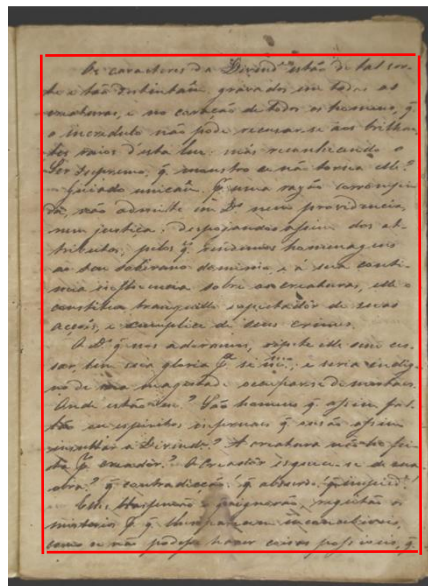 Os caracteres da Divind.e estão de tal sor-
te e tão distintam. gravados em todas as
creaturas, e no coração de todos os homens, q.
o incredulo não pode recusar-se aos brilhan
tes raios d'esta luz. mas
Ser Supremo, q. monstro se não torna elle?
guiado unicam. p. uma razão corrompi-
da, não admite em D.s nem providencia,
nem justiça. Despojando assim dos at-
tributos, pelos q. rendemos homenagens
ao seu soberano dominio, e á sua conti-
nua influencia sobre as creaturas, elle o
constitue tranquillo espectador de suas
acções, e cumplice de seus crimes.
A D.s q. nos adoramos, repete elle sem ces-
sar, tem sua gloria p. si, e seria indig-
no de sua magestade occupar-se de mortaes.
Onde estão eu? São homens q. assim fal-
tão ou espiritos infernaes q. ousão assim
a Divind.e? A creatura não foi fei-
ta p. creador? O Creador esquece-se de sua
obra? q. contradicção, q. absurdo, q.
Elles
misterios p. q. lhes
como se não podesse haver cousas possiveis, q.